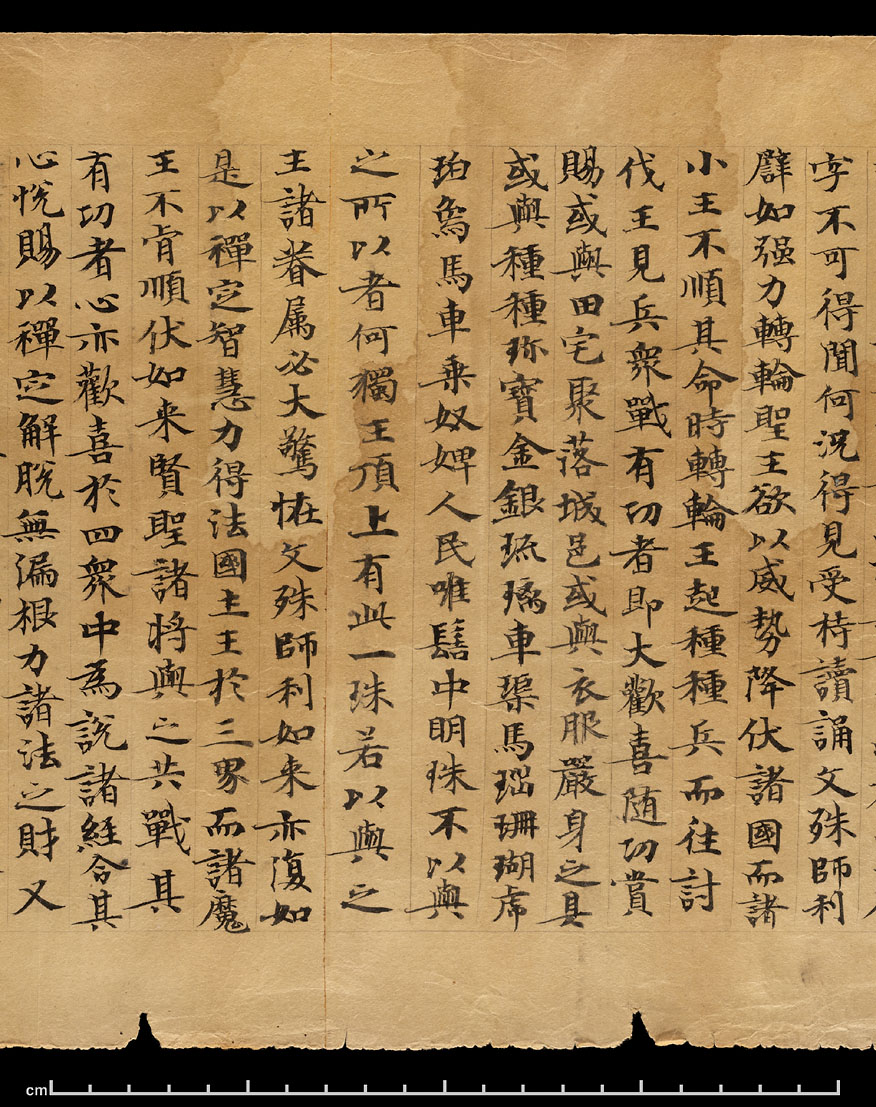 字不可得聞何況得見受持讀誦文殊師利
譬如强力轉輪聖王欲以威勢降伏諸國而諸
小王不順其命時轉輪王起種種兵而往討
伐王見兵衆戰有功者即大歡喜随功賞
賜或與田宅聚落城邑或與衣服嚴身之具
或與種種珎寶金銀琉璃車璖馬瑙珊瑚席
珀鳥馬車乗奴婢人民唯髻中明珠不以與
之所以者何獨王頂上有此一珠若以與之
王諸眷属必大驚恠文殊師利如来亦復如
是以禪定智慧力得法國土王於三界而諸魔
王不肯順伏如来賢聖諸將與之共戰其
有功者心亦歡喜於四衆中為說諸經令其
心悅賜以禪定解脫無漏根力諸法之財又